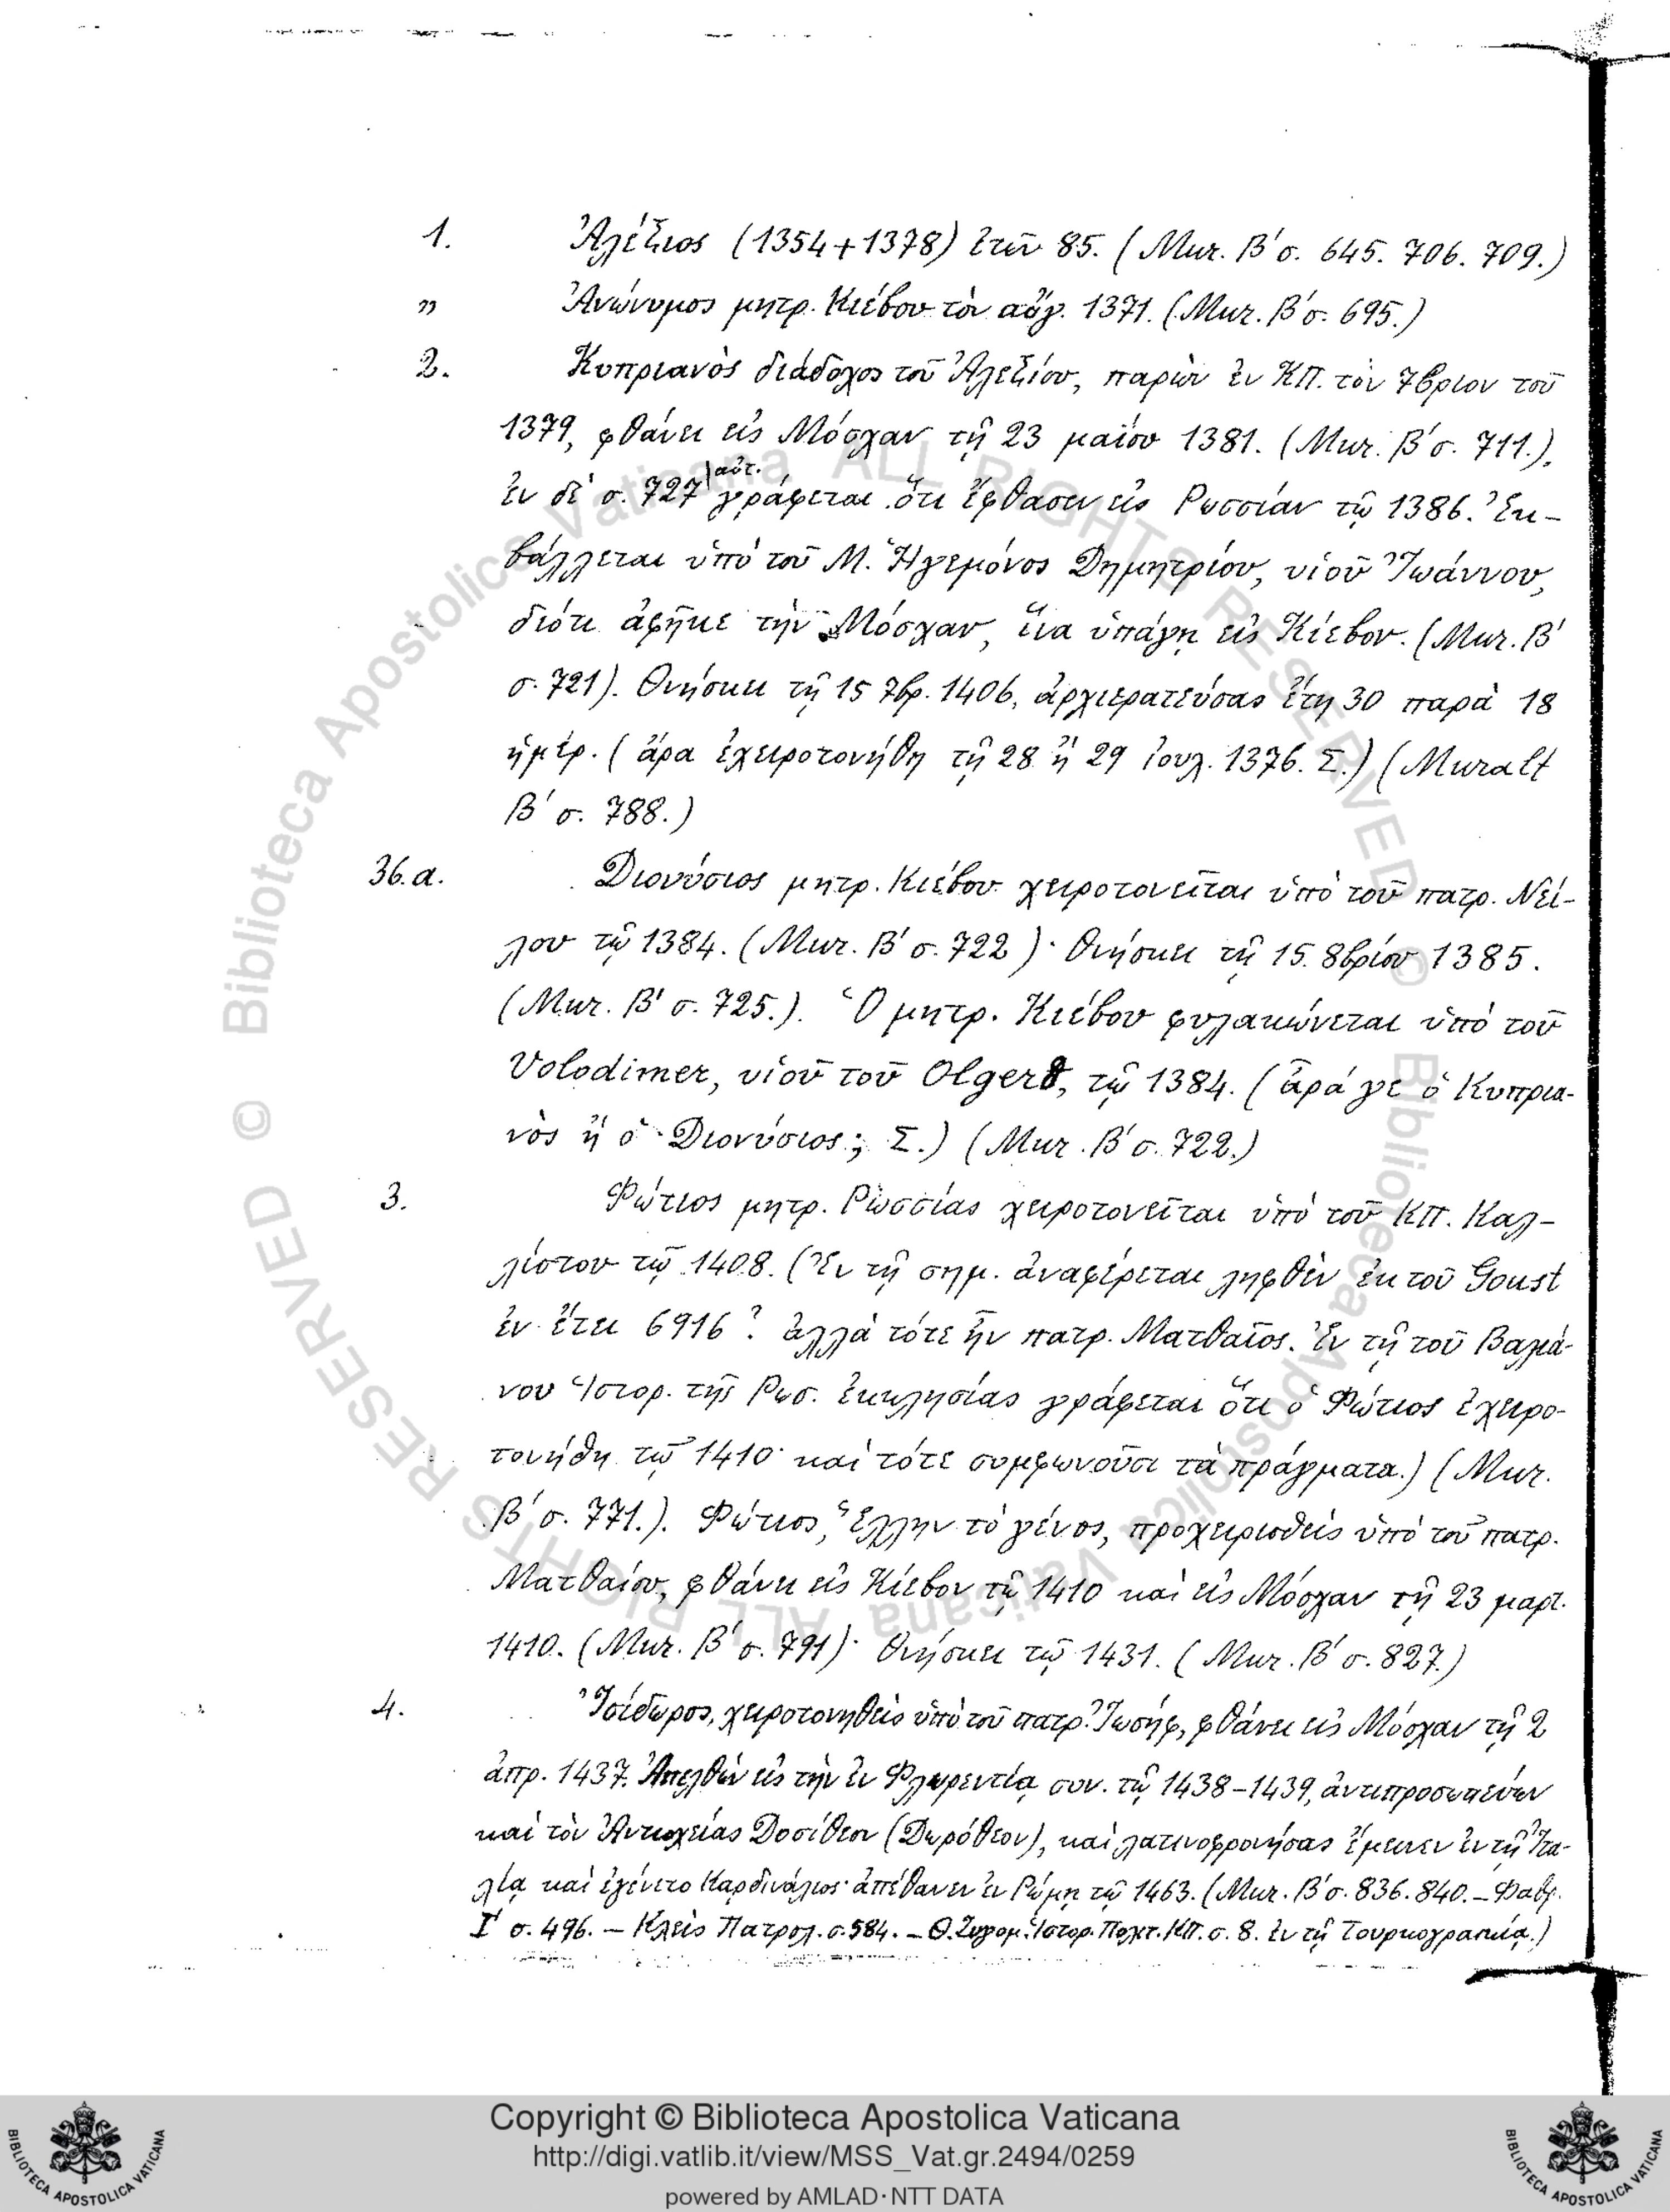 1. Ἀλέξιος (1354+1378) ἐτῶν 85. (Mur. Β΄ σ. 645. 706. 709.)
" Ἀνώνυμος μητρ. Κιέβου τὸν αὔγ. 1371. (Mur. Β΄ σ. 695.)
2. Κυπριανὸς διάδοχος τοῦ Ἀλεξίου, παρὼν ἐν ΚΠ. τὸν 7βριον τοῦ
1379, φθάνει εἰς Μόσχαν τῇ 23 μαΐου 1381. (Mur. Β΄ σ. 711.).
ἐν δὲ σ. 727 αὐτ. γράφεται ὅτι ἔφθασεν εἰς Ρωσσίαν τῷ 1386. Ἐκ-
βάλλεται ὑπὸ τοῦ Μ. Ἡγεμόνος Δημητρίου, υἱοῦ Ἰωάννου,
διότι ἀφῆκε τὴν Μόσχαν, ἵνα ὑπάγῃ εἰς Κίεβον. (Mur. Β΄
σ. 721). Θνήσκει τῇ 15 7βρ. 1406, ἀρχιερατεύσας ἔτη 30 παρὰ 18
ἡμέρ. (ἄρα ἐχειροτονήθη τῇ 28 ἢ 29 ἰουλ. 1376. Σ.) (Muralt
Β΄ σ. 788.)
36.α. Διονύσιος μητρ. Κιέβου χειροτονεῖται ὑπὸ τοῦ πατρ. Νεί-
λου τῷ 1384. (Mur. Β΄ σ. 722)· θνήσκει τῇ 15. 8βρίου 1385.
(Mur. Β΄ σ. 725.). Ὁ μητρ. Κιέβου φυλακώνεται ὑπὸ τοῦ
Volodimer, υἱοῦ τοῦ Olgerd, τῷ 1384. (ἆρά γε ὁ Κυπρια-
νὸς ἢ ὁ Διονύσιος; Σ.) (Mur. Β΄ σ. 722.)
3. Φώτιος μητρ. Ρωσσίας χειροτονεῖται ὑπὸ τοῦ ΚΠ. Καλ-
λίστου τῷ 1408. (Ἐν τῇ σημ. ἀναφέρεται ληφθὲν ἐκ τοῦ Goust
ἐν ἔτει 6916? ἀλλὰ τότε ἦν πατρ. Ματθαῖος. Ἐν τῇ τοῦ Βαλιά-
νου Ἱστορ. τῆς Ρωσ. ἐκκλησίας γράφεται ὅτι ὁ Φώτιος ἐχειρο-
τονήθη τῷ 1410· καὶ τότε συμφωνοῦσι τὰ πράγματα.) (Mur.
Β΄ σ. 771.). Φώτιος, Ἕλλην τὸ γένος, προχειρισθεὶς ὑπὸ τοῦ πατρ.
Ματθαίου, φθάνει εἰς Κίεβον τῷ 1410 καὶ εἰς Μόσχαν τῇ 23 μαρτ.
1410. (Mur. Β΄ σ. 791)· θνήσκει τῷ 1431. (Mur. Β΄ σ. 827.)
4. Ἰσίδωρος, χειροτονηθεὶς ὑπὸ τοῦ πατρ. Ἰωσήφ, φθάνει εἰς Μόσχαν τῇ 2
ἀπρ. 1437. Ἀπελθὼν εἰς τὴν ἐν Φλωρεντίᾳ συν. τῷ 1438-1439, ἀντιπροσωπεύων
καὶ τὸν Ἀντιοχείας Δοσίθεον (Δωρόθεον), καὶ λατινοφρονήσας ἔμεινεν ἐν τῇ Ἰτα-
λίᾳ καὶ ἐγένετο Καρδινάλιος· ἀπέθανεν ἐν Ρώμῃ τῷ 1463. (Mur. Β΄ σ. 836. 840. – Φαβρ.
Ι΄ σ. 496. – Κλεὶς Πατρολ. σ. 584. – Θ. Ζυγομ. Ἱστορ. Πολιτ. ΚΠ. σ. 8. ἐν τῇ Τουρκογραικίᾳ.)
© Biblioteca Apostolica Vaticana ALL RIGHTS RESERVED
© Biblioteca Apostolica Vaticana ALL RIGHTS RESERVED
Copyright © Biblioteca Apostolica Vaticana
http://digi.vatlib.it/view/MSS_Vat.gr.2494/0259
powered by AMLAD·NTT DATA
BIBLIOTECA APOSTOLICA VATICANA
BIBLIOTECA APOSTOLICA VATICANA